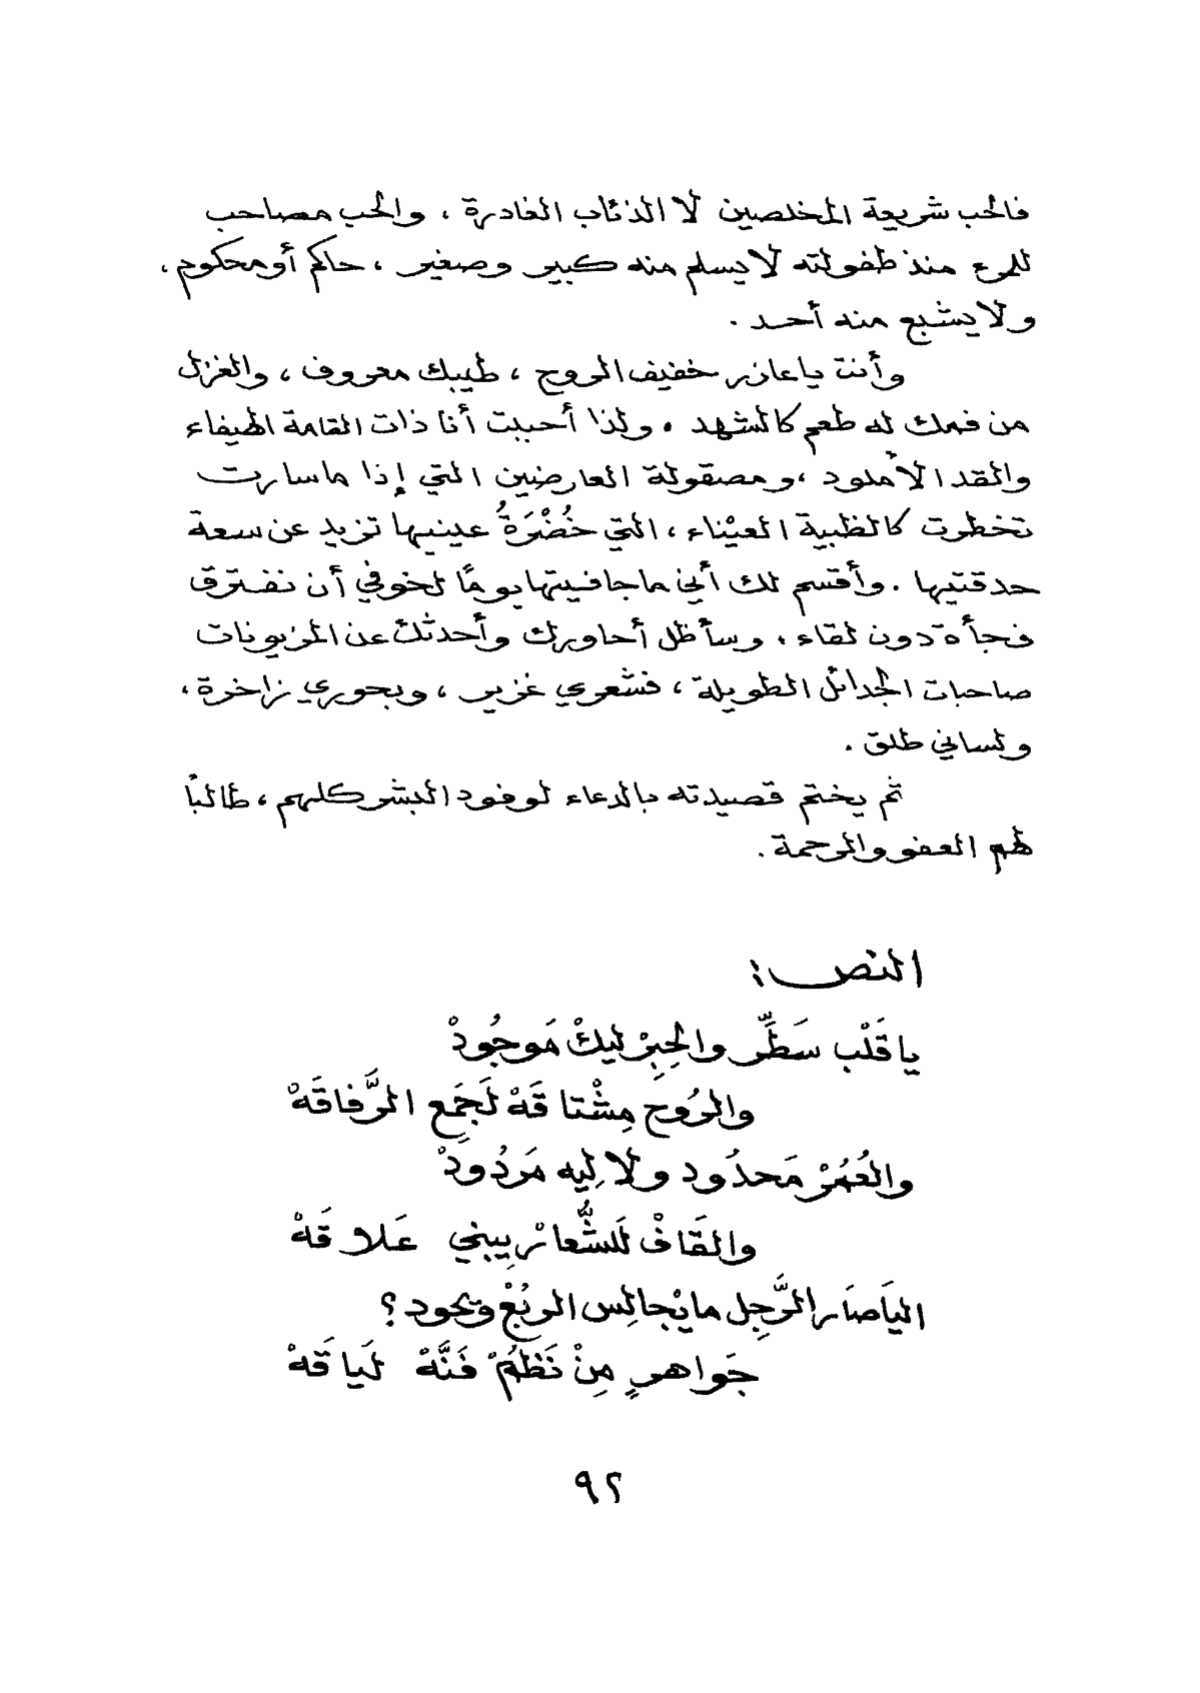 فالحب شريعة المخلصين لا الذئاب الغادرة ، والحب مصاحب
للمرء منذ طفولته لا يسلم منه كبير وصغير ، حاكم أو محكوم ،
ولا يشبع منه أحد .
وأنت يا عازر خفيف الروح ، طيبك معروف ، والغزل
من فمك له طعم كالشهد . ولذا أحببت أنا ذات القامة الهيفاء
والقد الأملود ، ومصقولة العارضين التي إذا ما سارت
تخطرت كالظبية العيْناء ، التي خُضْرَةُ عينيها تزيد عن سعة
حدقتيها . وأقسم لك أني ما جافيتها يومًا لخوفي أن نفترق
فجأة دون لقاء . وسأظل أحاورك وأحدثك عن المزيونات
صاحبات الجدائل الطويلة ، فشعري غزير ، وبحوري زاخرة ،
ولساني طلق .
ثم يختم قصيدته بالدعاء لوفود البشر كلهم ، طالبًا
لهم العفو والرحمة .
النص :
يا قَلْب سَطِّر والحِبِرْ ليكْ مَوجُودْ
والرُوح مِشْتاقَهْ لَجَمع الرَّفاقَهْ
والعُمُرْ مَحدُود ولا لِيه مَردُودْ
والقَافْ لَلشُّعارْ يِبني عَلاقَهْ
اليَا صَار الرَّجِل ما يْجالِس الربُعْ ويجود ؟
جَواهرٍ مِنْ نَظمُهْ فَنَّهْ لَياقَهْ
٩٢